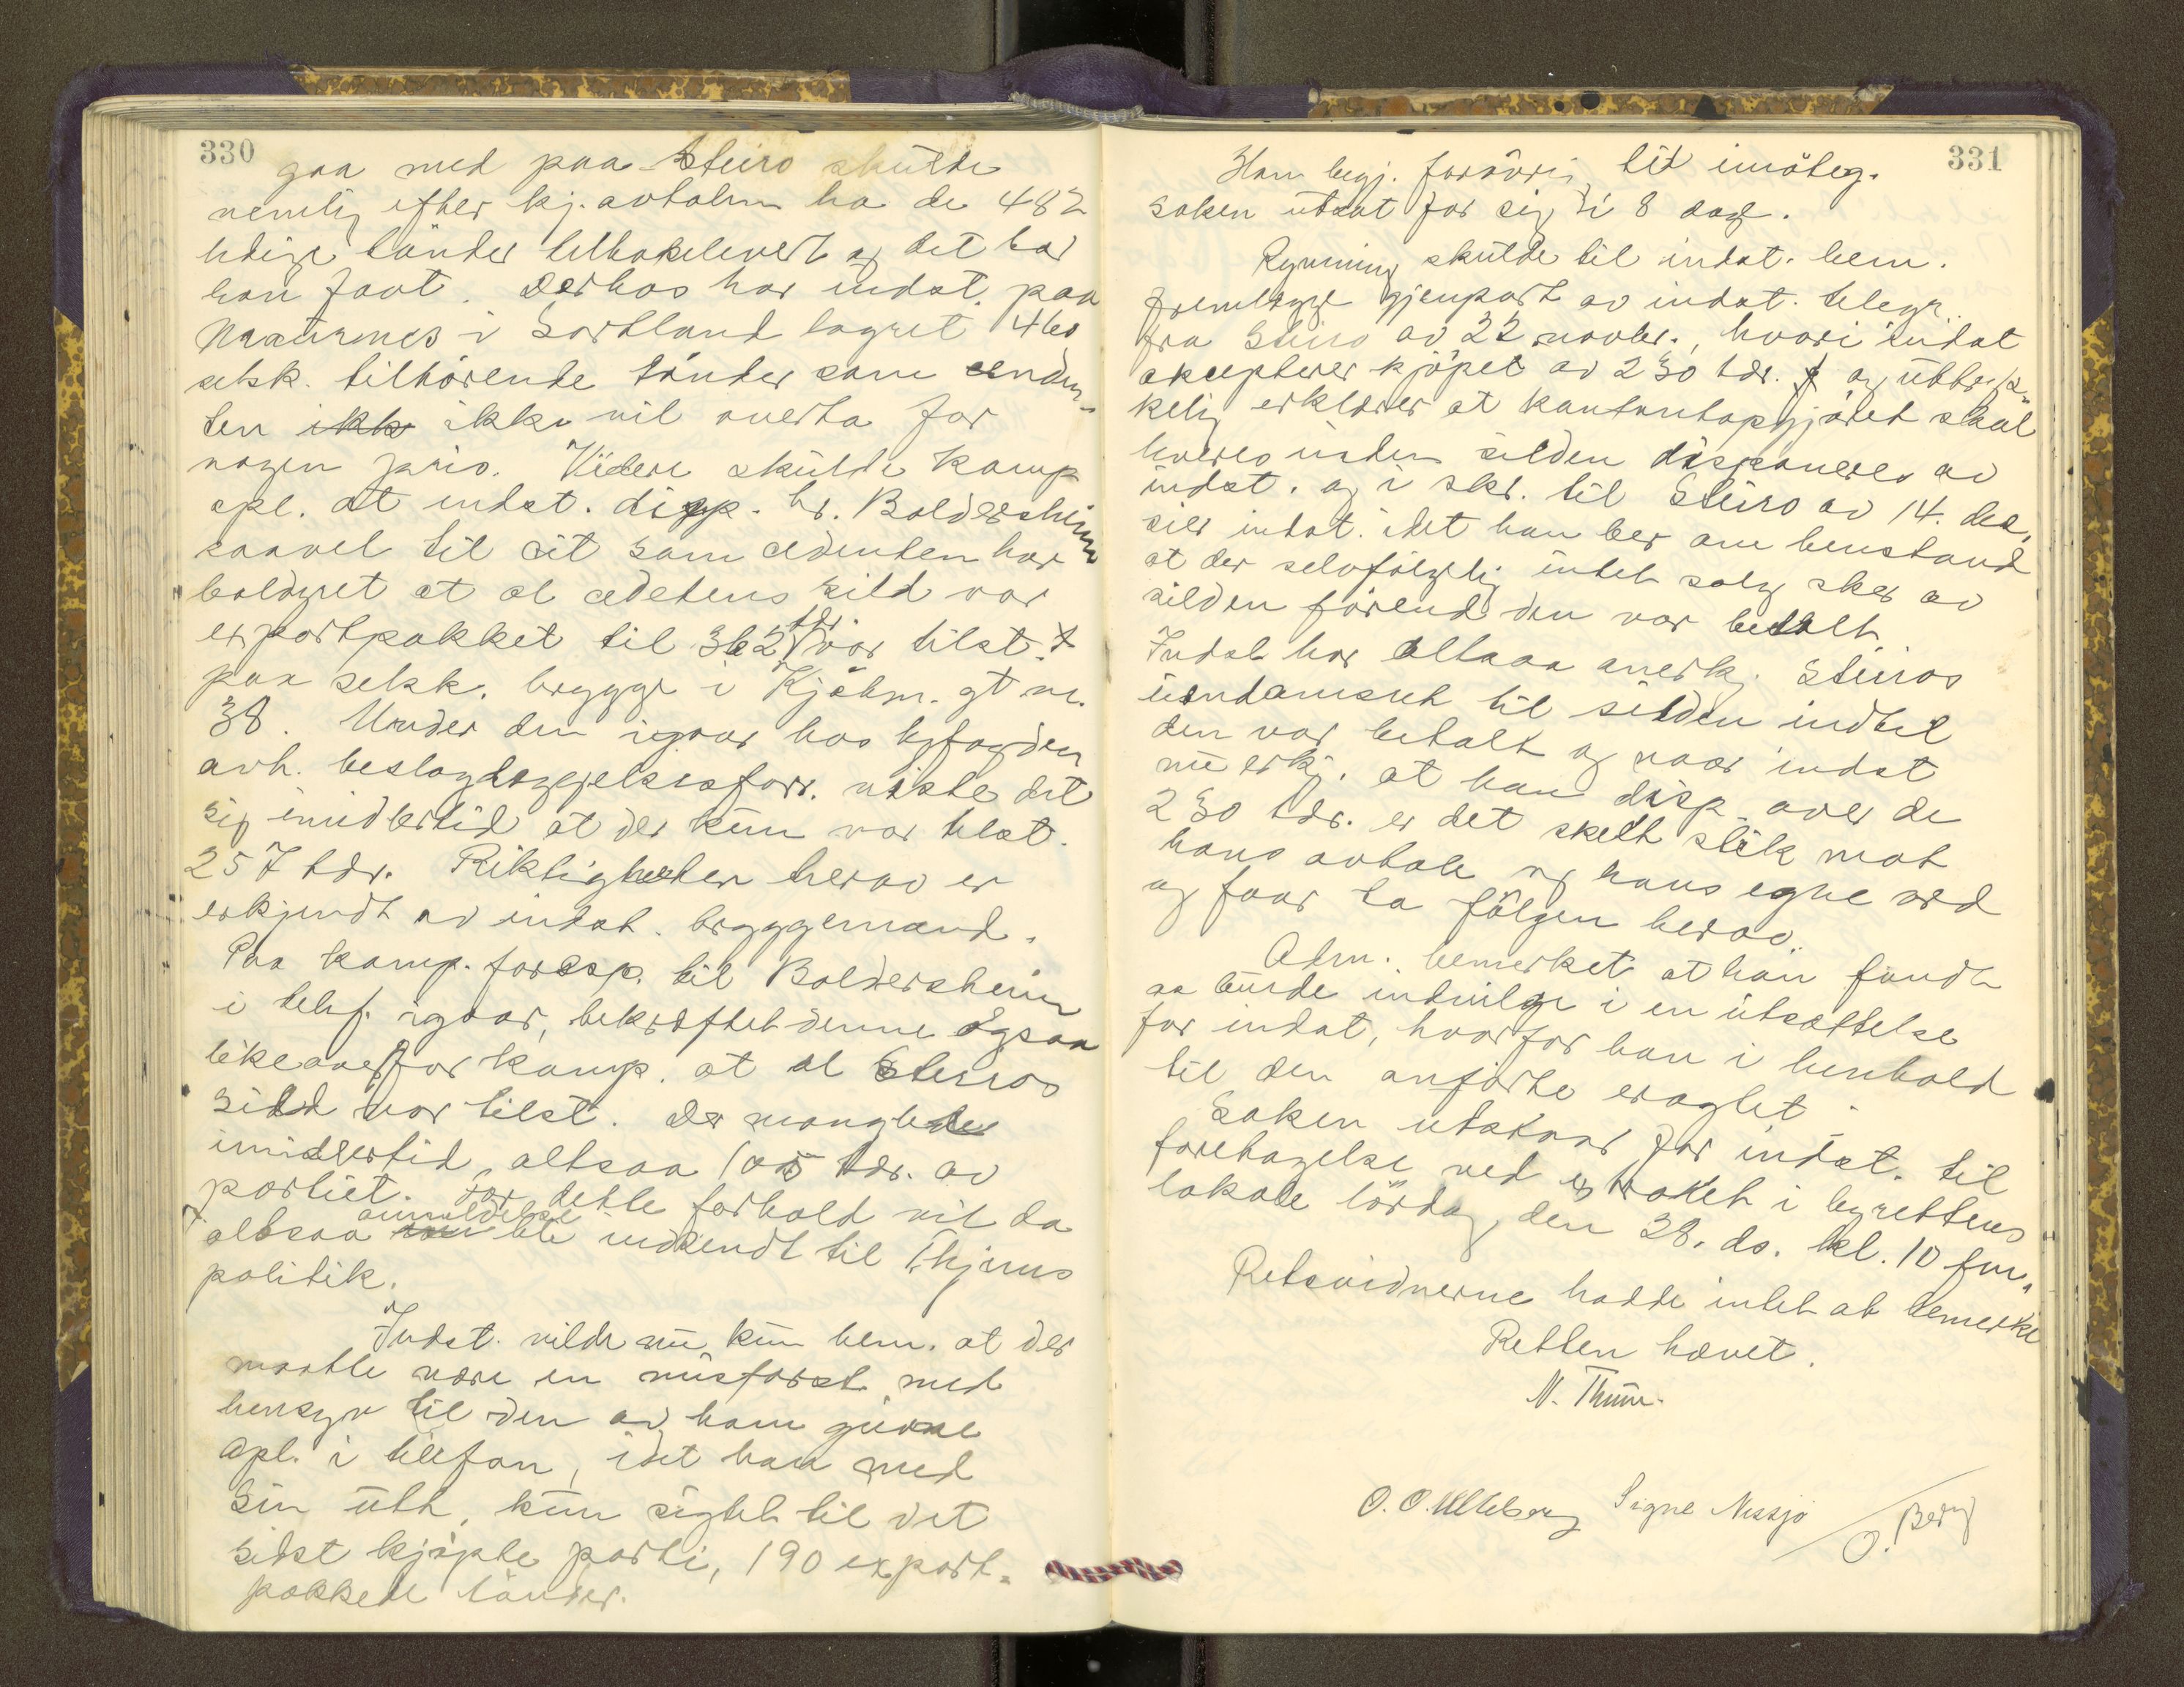 330
gaa med paa Steiro skulde
nemlig efter kj. avtalen ha de 482
ledige tønder tilbakelevert og det har
han faat. Derhos har indst. paa
i Sortland lagret 460
selsk. tilhørende tønder som cedenten
ten ikke vil overta for
nogen pris. Videre skulde Kamp
opl. at indst. disp. hr. Boldersheim
saavel til sit som cedenten har
boldyret at al cedetens sild var
exportpakket til 362 tdr. var tilst.
paa selsk. brygge i Kjøbm. gt nr.
38. Under den igaar hos byfogden
avh. beslaglæggelsesforr. viste det
sig imidlertid at der kun var tilst.
257 tdr. Riktigheten herav er
erkjendt av indst. bryggemand.
Paa Kamp. foresp. til Boldersheim
i telef. igaar, bekræftet denne ogsaa
likeoverfor Kamp. at al Steiros
sild var tilst. Der manglede
imidlertid altsaa 105 tdr. av
partiet. For dette forhold vil da
altsaa anmeldelse bli indsendt til Thjems
politik.
Indst. vilde nu kun bem. at der
maatte være en misforst. med
hensyn til den av ham givne
opl. i telefon, idet han med
sin utt. kun sigtet til det
sidst kjøpte parti, 190 export-
pakkede tønder.
331
Han begj. forøvrig til imøteg.
saken utsat for sig i 8 dage.
Rynning skulde til indst. bem.
fremlægge gjenpart av indst. telegr.
fra Steiro av 22 novbr., hvori indst
aksepterer kjøpet av 230 tdr. og uttryk-
kelig erklærer at kontantopgjøret skal
leveres inden silden disponeres av
indst. og i skr. til Steiro av 14. des.
sier indst. idet han ber om henstand
at der selvfølgelig intet salg sker av
silden førend den var betalt.
Indst har altsaa anerkj. Steiros
eiendomsret til silden indtil
den var betalt og naar indst
nu erkj. at han disp. over de
230 tdr. er det skedt slik mot
hans avtale og hans egne ord
og faar ta følgen herav.
Adm. bemerket at han fandt
at burde indvilge i en utsættelse
for indst, hvorfor han i henhold
til den anførte eragtet
Saken utstaar for indst. til
foretagelse ved extraret i byrettens
lokale lørdag den 28. ds. kl. 10 fm.
Retsvidnerne hadde intet at bemerke
Retten hævet.
N. Thüm.
O. O. Uttelsberg Signe Nessjø
O. Berg